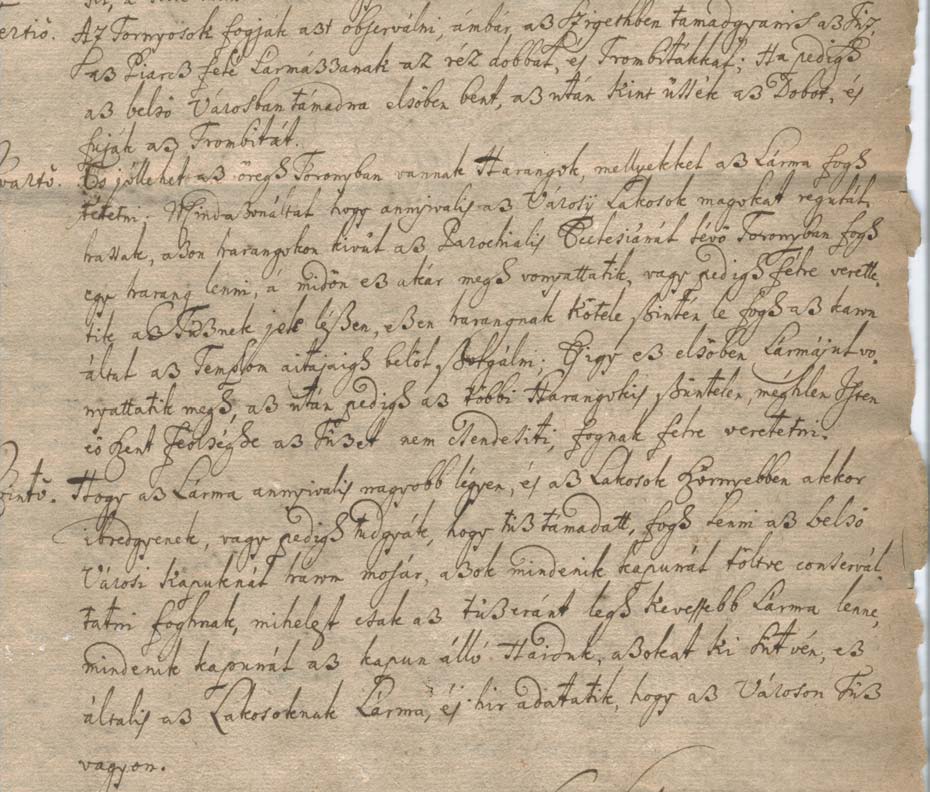 ertiò. Az Tornyosok fogják azt observálni, ámbár az Szigethben támadgyanis az Tüz,
az Piarcz felé Lármázzanak az réz dobbal, és Trombitákkal; Ha pedigh
az belsö Városban támadna elsöben bent, az után kint üssék az Dobot, és
fújják az Trombitát.
vartò. És jóllehet az öregh Toronyban vannak Harangok, mellyekkel az Lárma fogh
tétetni. Mindazonáltal hogy annyivalis az Városÿ Lakosok magokat regulál
hassak, azon harangokon kivül az Parochialis Ecclesiánál lévö Toronyban fogh
egy harang lenni, á midön ez akár megh vonyattatik, vagy pedigh félre verette
tik, az Tüznek jele lészen, ezen harangnak kötele szintén le fogh az karon
által az Templom aitajaigh belöl szolgálni; Eÿgy ez elsöben Lármájul vo
nyattatik megh, az után pedigh az többi Harangokis szüntelen, méghlen Isten
eö Szent Feölséghe az Tüzet nem csendesiti, fognak felre veretetni.
Hogy az Lárma annyivalis nagyobb légyen, és az Lakosok könnyebben akkor
ibredgyenek, vagy pedigh tudgyák, hogy tüz támadatt, fogh lenni az belsö
Városi Kapuknál három mosár, azok mindenik kapunál töltve conservál
tatni foghnak, mihelyt csak az tüz eránt legh kevessebb Lárma lenne,
mindenik kapunál az kapun álló Haiduk, azokat ki sütvén, ez
általis az Lakosoknak Lárma, és hir adatatik, hogy az Városon Tüz
vagyon.